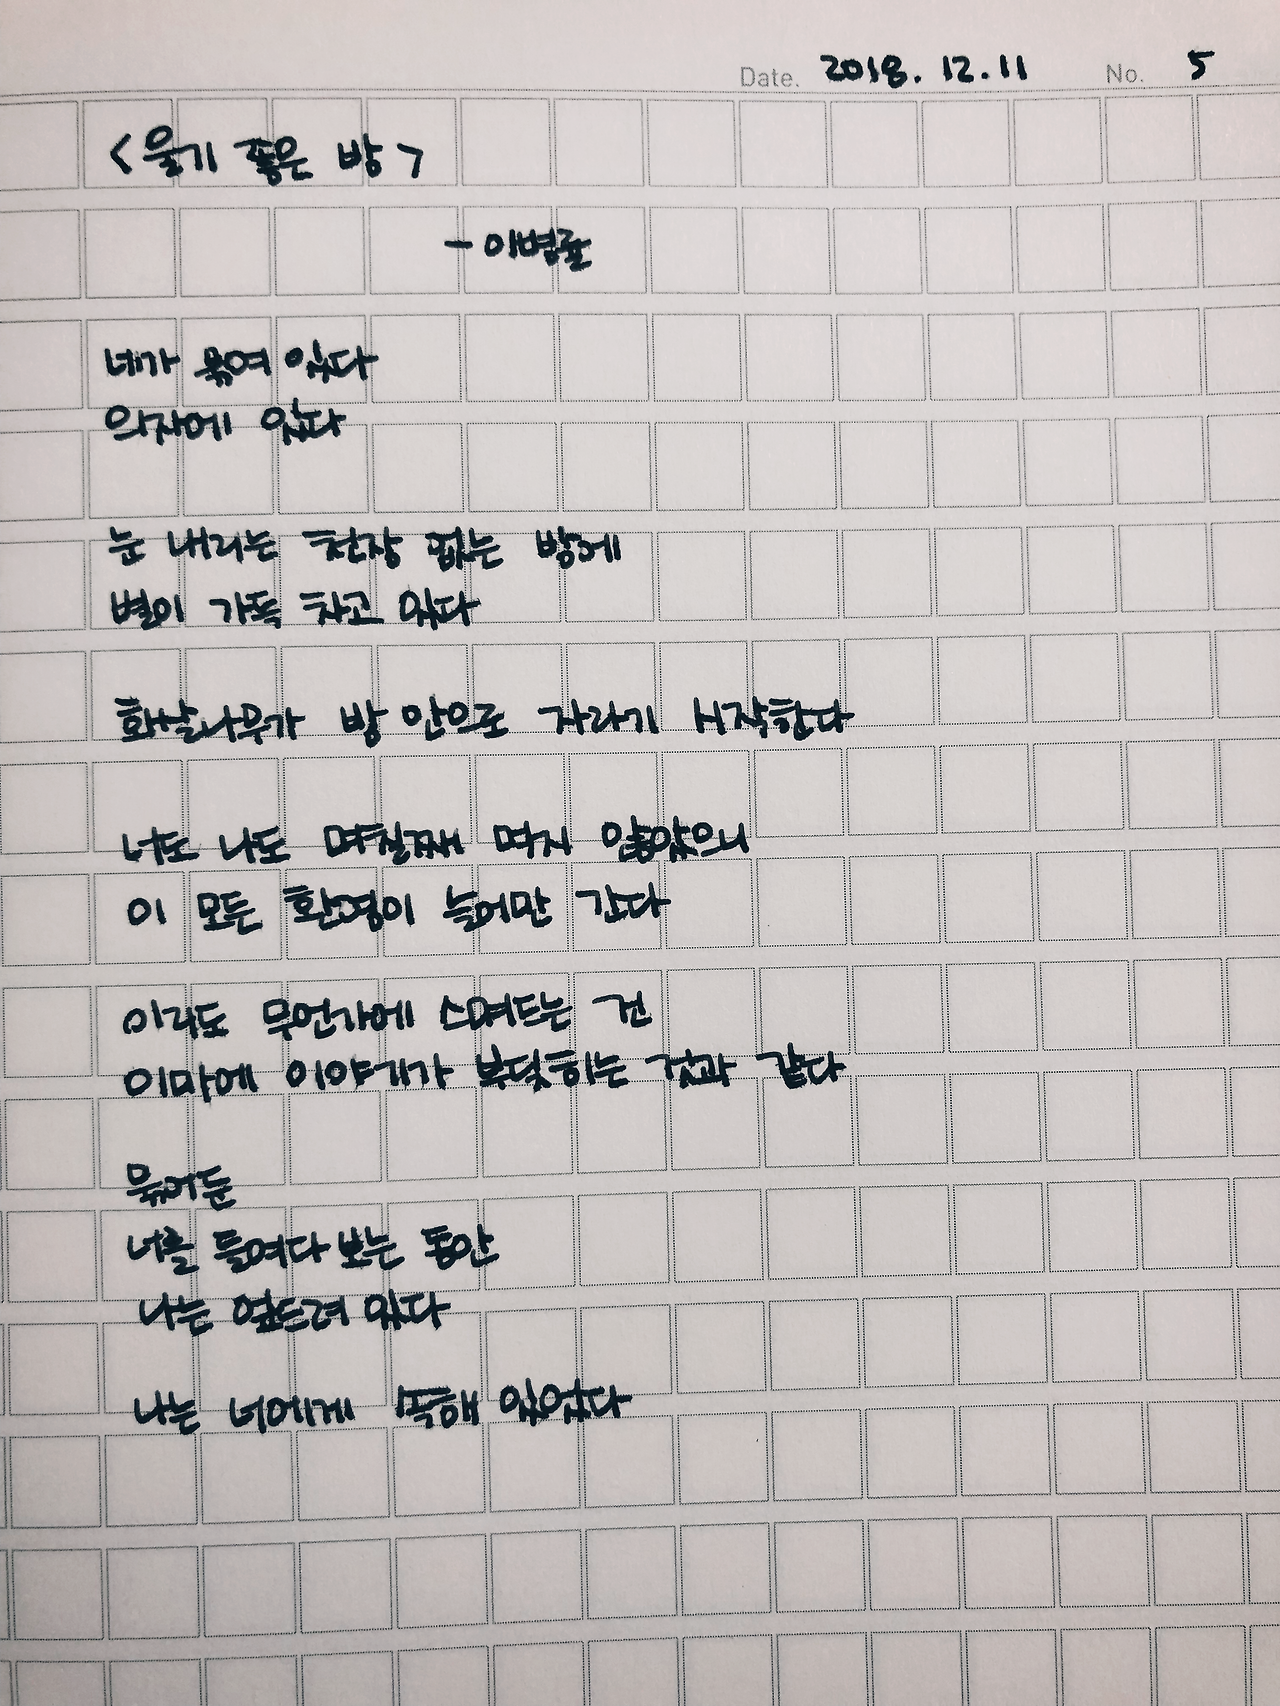 Date. 2018. 12. 11 No. 5
<울기 좋은 방>
- 이병률
네가 묶여 있다
의자에 있다
눈 내리는 천장 없는 방에
별이 가득 차고 있다
화살나무가 방 안으로 자라기 시작한다
너도 나도 며칠째 먹지 않았으니
이 모든 환영이 늘어만 간다
이리도 무언가에 스며드는 건
이마에 이야기가 부딪히는 것과 같다
묶어둔
너를 들여다 보는 동안
나는 엎드려 있다
나는 너에게 속해 있었다